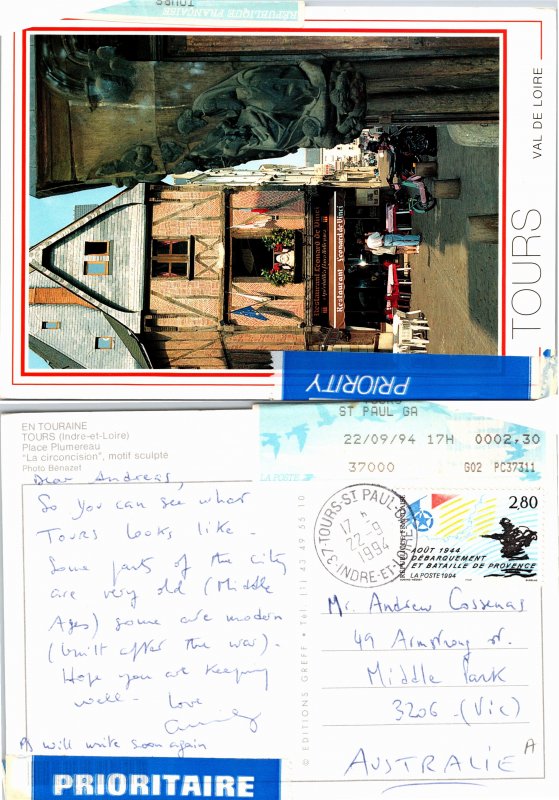 RÉPUBLIQUE FRANÇAISE
TOURS
VAL DE LOIRE
TOURS
Restaurant Léonard de Vinci
Restaurant Léonard de Vinci
PRIORITY
EN TOURAINE
TOURS (Indre-et-Loire)
Place Plumereau
"La circoncision", motif sculpté
Photo Benazet
ST PAUL GA
22/09/94 17H 0002,30
LA POSTE 37000 G02 PC37311
37-TOURS-ST PAUL
17 H
22-9
1994
INDRE-ET-LOIRE
2,80
RÉPUBLIQUE FRANÇAISE
AOÛT 1944
DÉBARQUEMENT
ET BATAILLE DE PROVENCE
LA POSTE 1994
Dear Andreas,
So you can see what
Tours looks like.
Some parts of the city
are very old (Middle
Ages) some are modern
(built after the war).
Hope you are keeping
well - love
PS will write soon again
© EDITIONS GREFF • Tél. (1) 43 49 55 10
Mr. Andrew Cossenas
49 Armstrong st.
Middle Park
3206 - (Vic)
AUSTRALIE
A
PRIORITAIRE